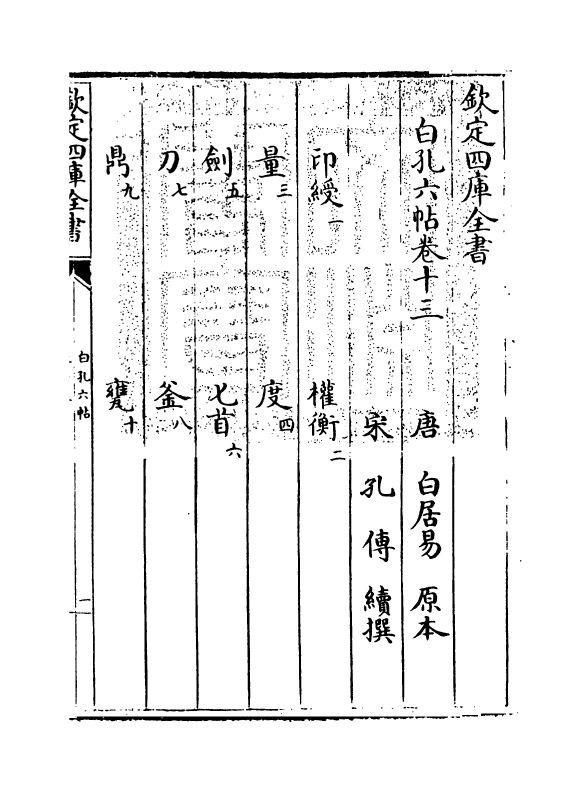 欽定四庫全書
白孔六帖卷十三
唐 白居易 原本
宋 孔傳 續撰
印綬一 權衡二
量三 度四
劍五 匕首六
刀七 釜八
鼎九 甕十
欽定四庫全書
白孔六帖
一